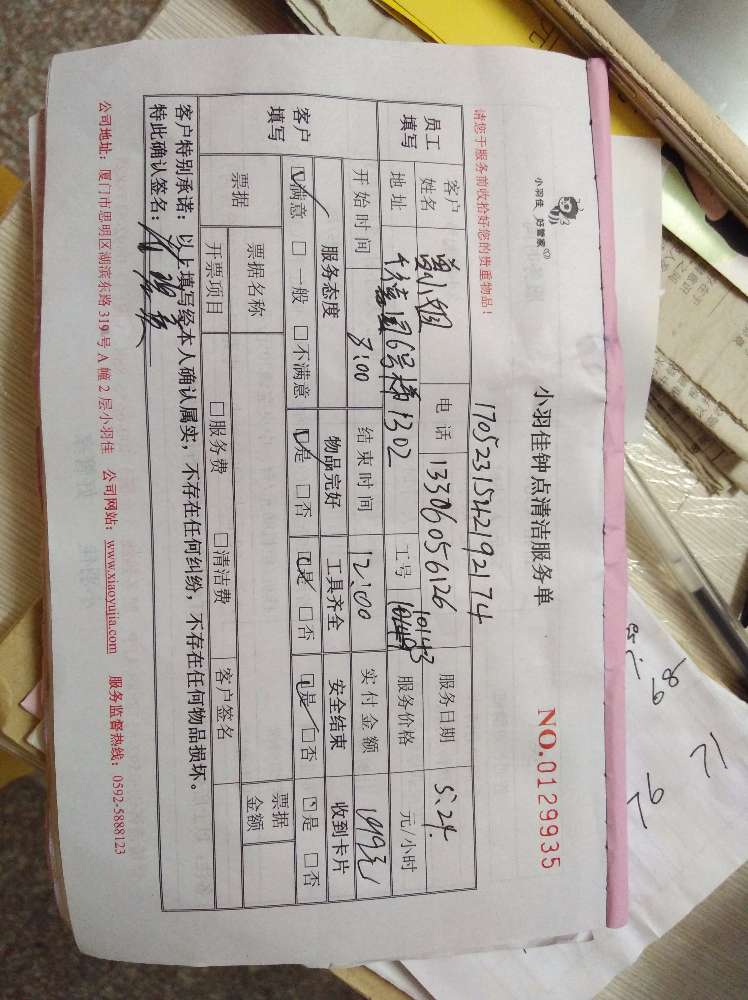 小羽佳 好管家
小羽佳钟点清洁服务单
NO.0129935
请您于服务前收拾好您的贵重物品！
1705231542192174
员工填写
客户姓名 曾小姐 电话 13306056126 服务日期 5.24.
地址 千禧园6号梯1302 工号 10143 服务价格 元/小时
开始时间 3:00 结束时间 12:00 实付金额
客户填写
服务态度 物品完好 工具齐全 安全结束 收到卡片
满意 □一般 □不满意 是 □否 是 □否 是 □否 □是 □否
票据 票据名称 □服务费 □清洁费 客户签名 票据金额
开票项目
客户特别承诺：以上填写经本人确认属实，不存在任何纠纷，不存在任何物品损坏。
特此确认签名：
公司地址：厦门市思明区湖滨东路319号A幢2层小羽佳 公司网站：www.xiaoyujia.com 服务监督热线：0592-5888123
68
76
71